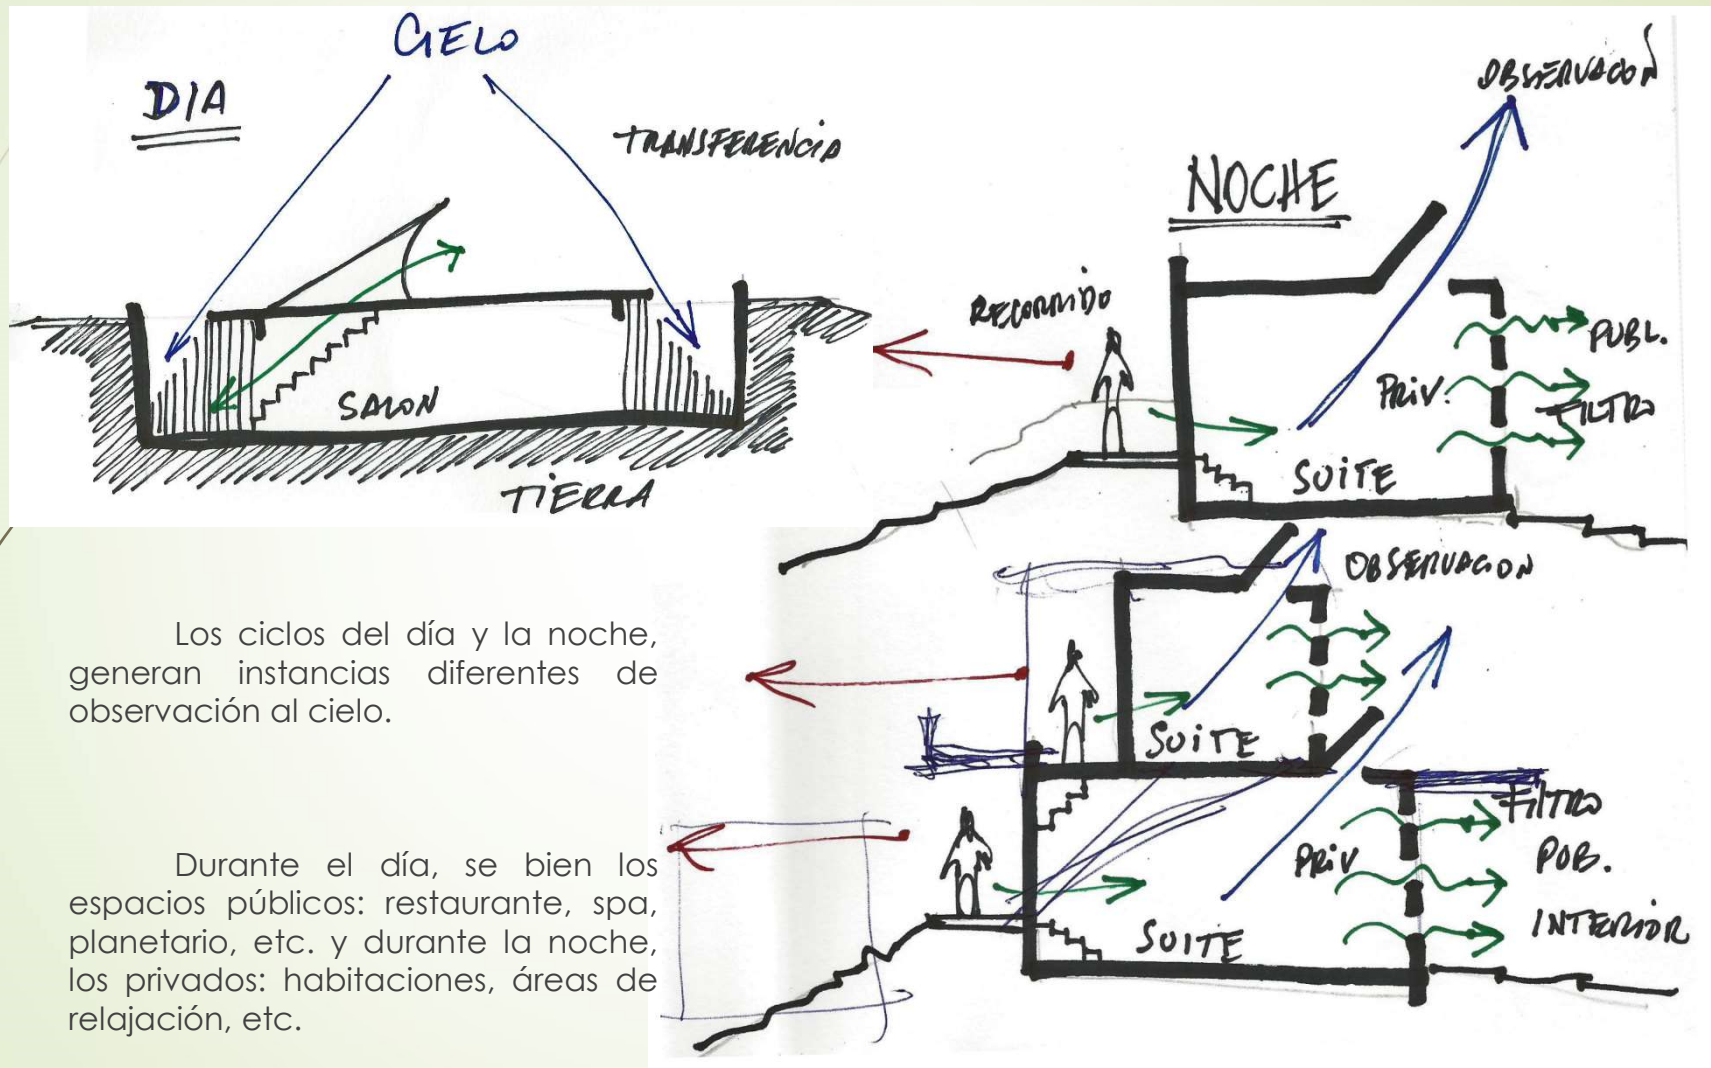 CIELO
DIA
TRANSFERENCIA
SALON
TIERRA
OBSERVACON
NOCHE
RECORRIDO
PUBL.
PRIV.
FILTRO
SUITE
OBSERVACION
SUITE
FILTRO
PRIV
PUB.
INTERIOR
SUITE
Los ciclos del día y la noche,
generan instancias diferentes de
observación al cielo.
Durante el día, se bien los
espacios públicos: restaurante, spa,
planetario, etc. y durante la noche,
los privados: habitaciones, áreas de
relajación, etc.